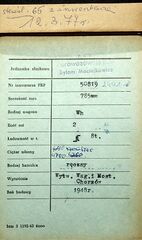 skreśl. 65 z inwentarza
12.3.77r.
Jednostka służbowa
Bytom Maciejkowice
Nr inwentarza PKP 50819
Szerokość toru 785mm
Rodzaj wagonu Wh
Ilość osi 2
Ładowność w t. 8t.
Ciężar własny
Rodzaj hamulca ręczny
Wytwórnia Wytw. Wag. i Most.
Chorzów
Rok budowy 1948r.